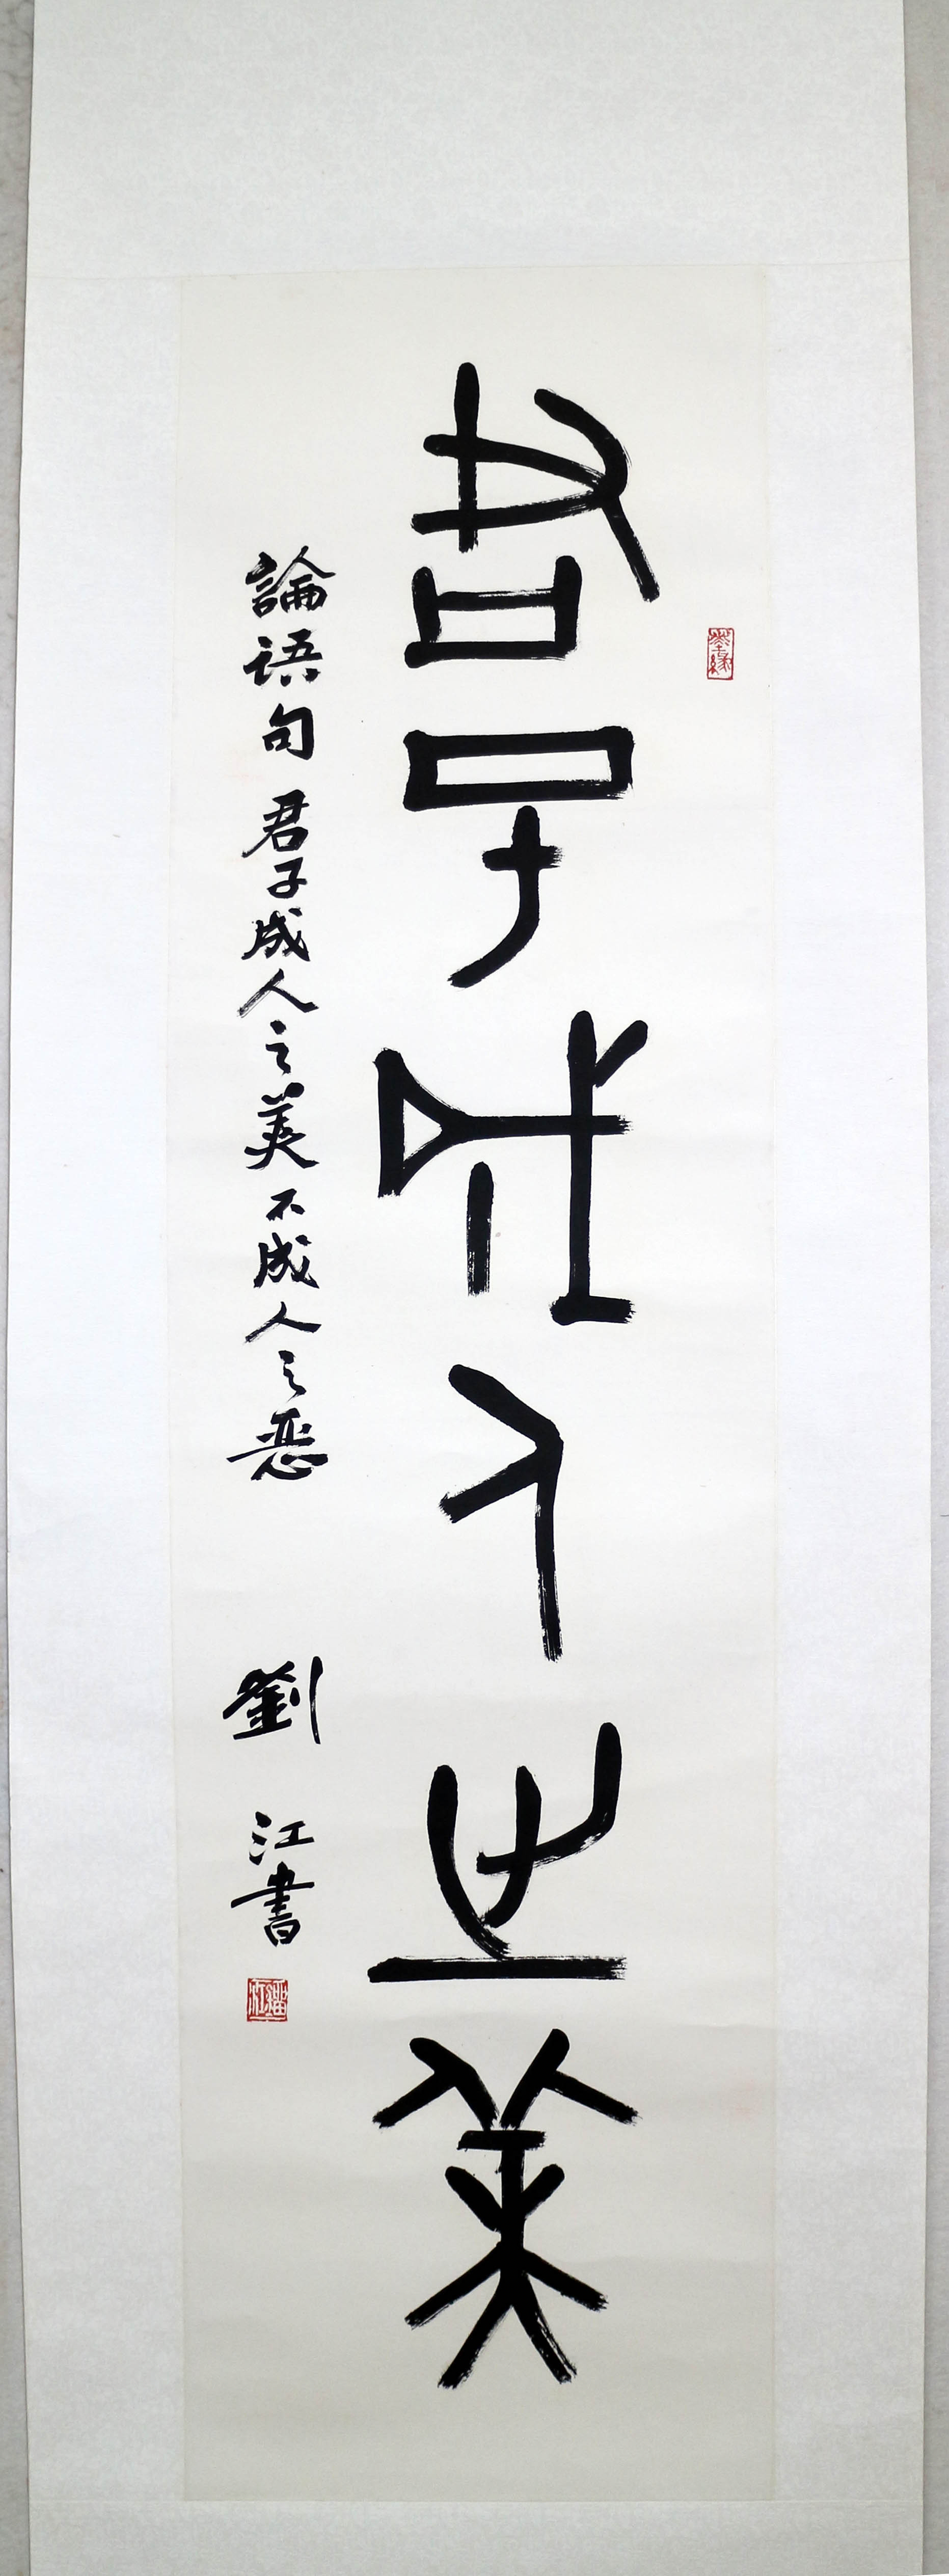 君子成人之美
論语句 君子成人之美不成人之恶
劉江書
劉江